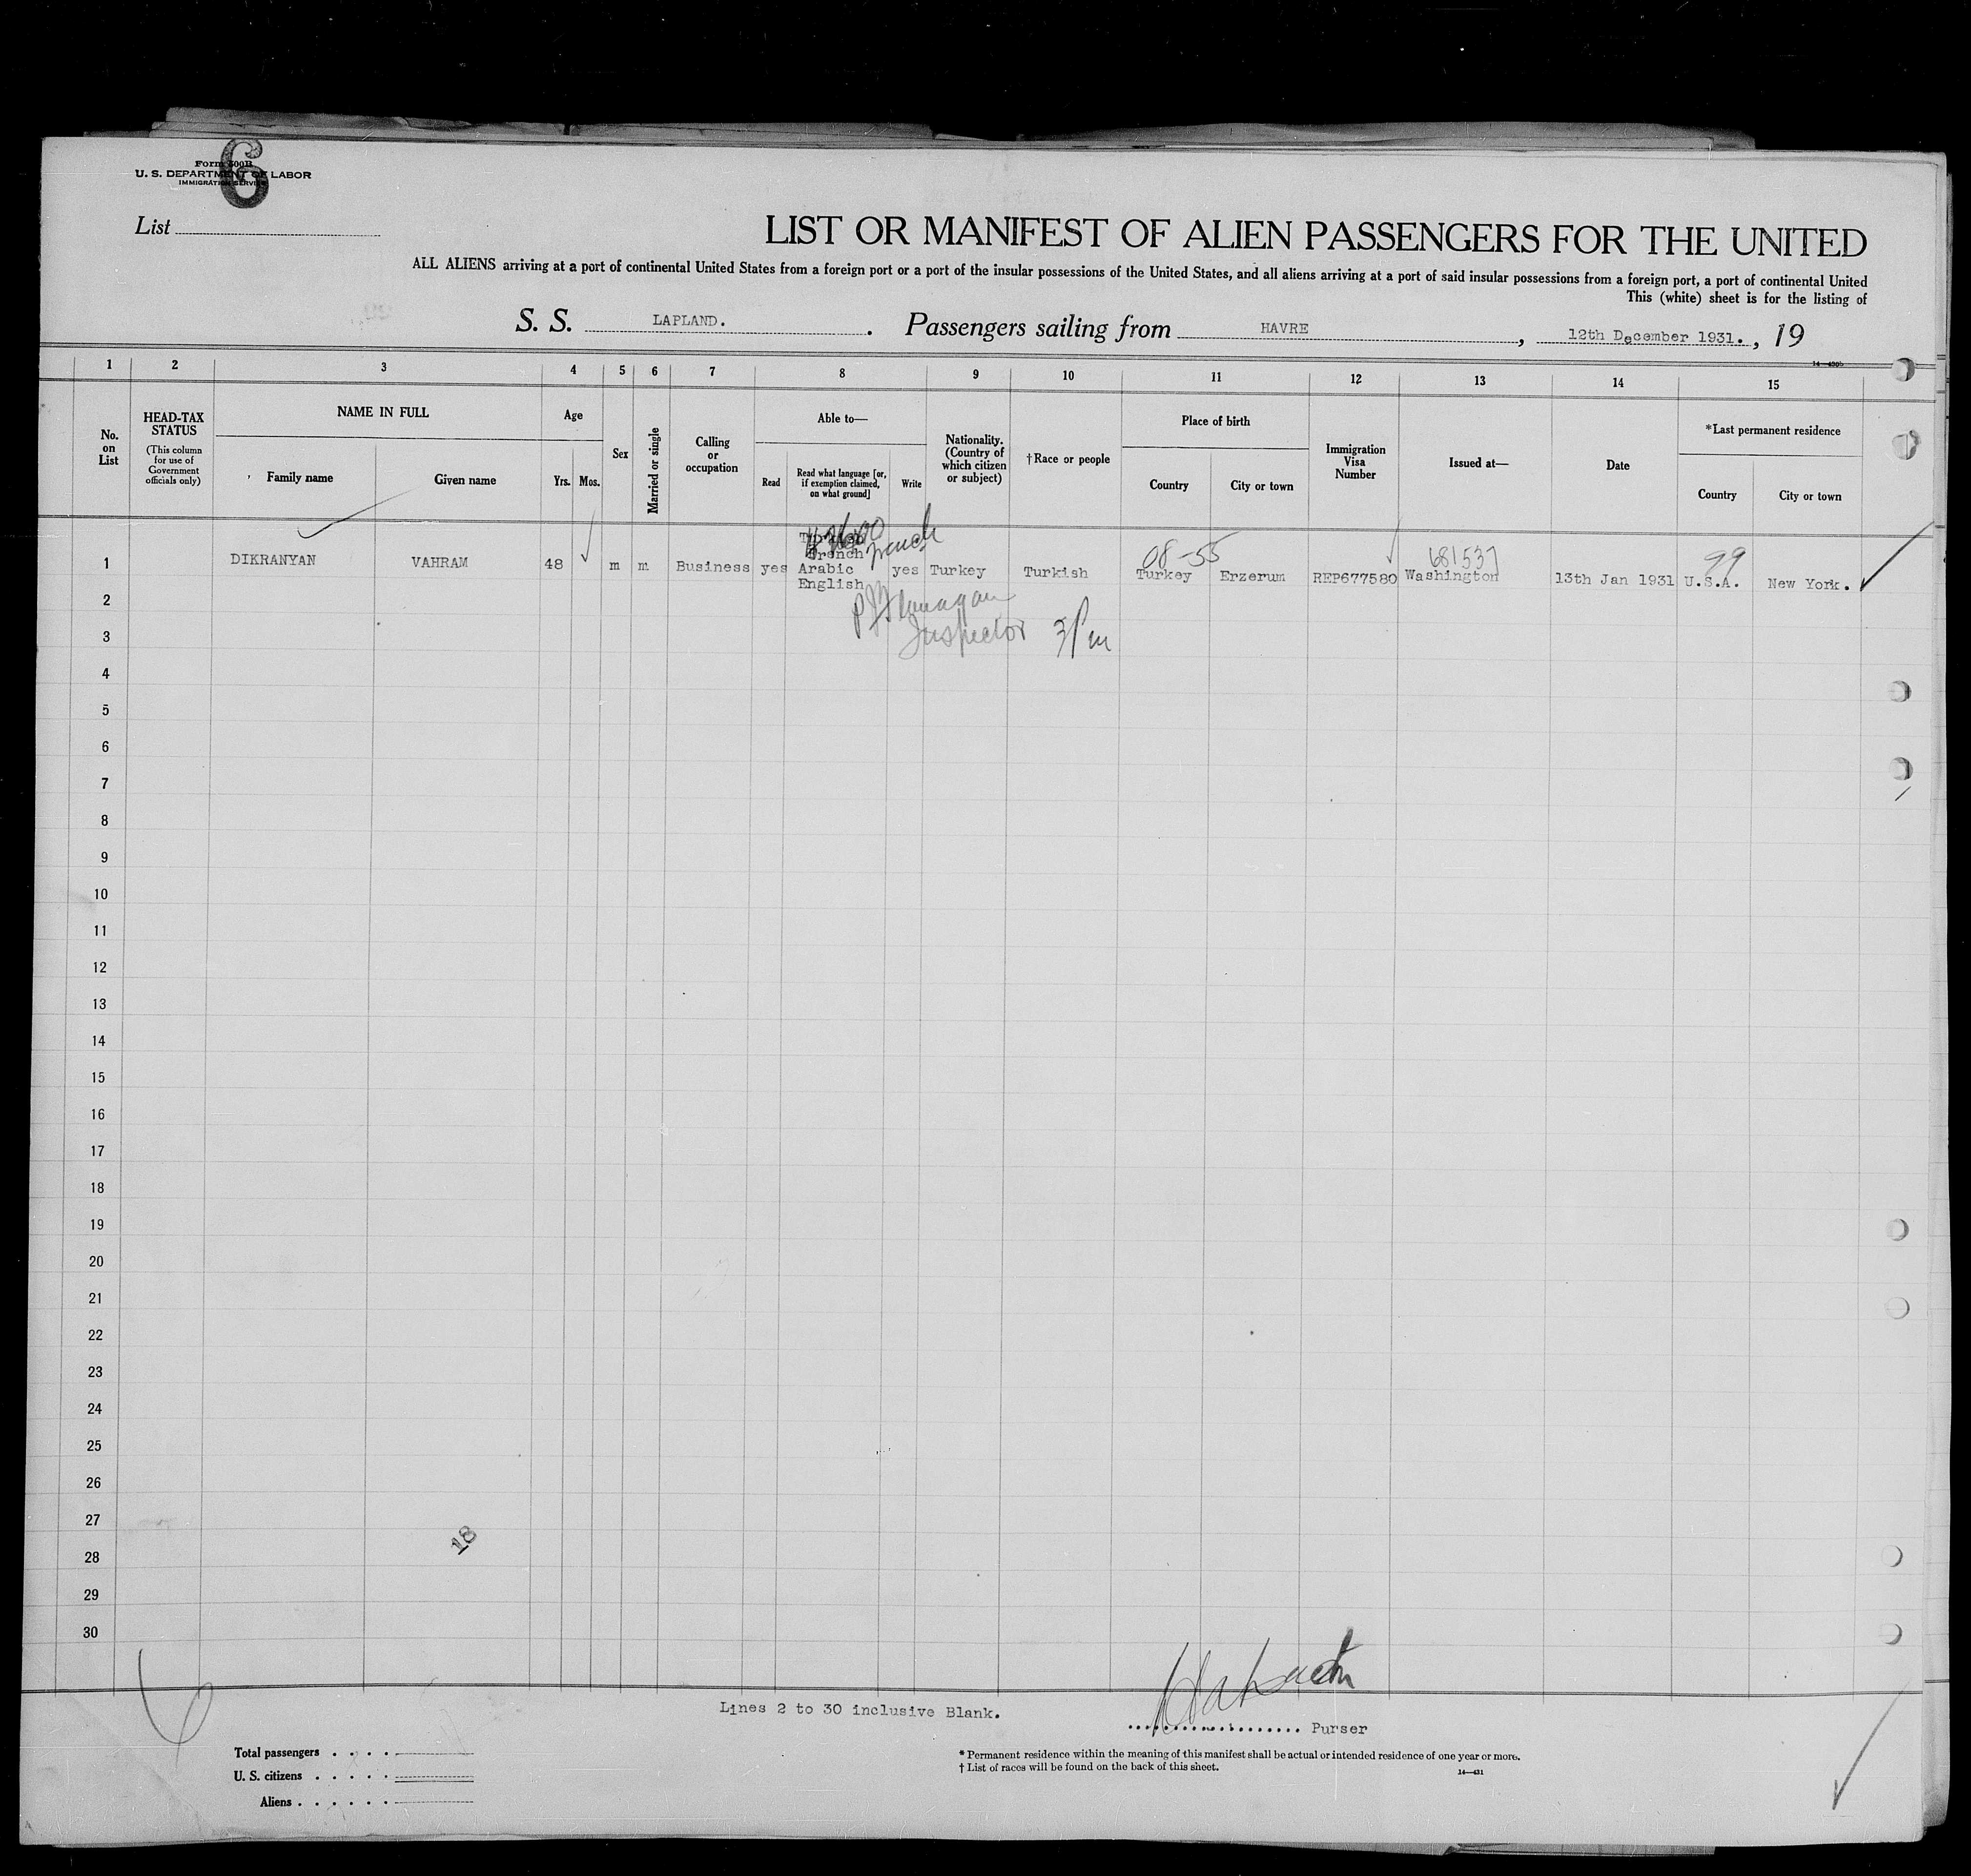 6
Form 500B
U. S. DEPARTMENT OF LABOR
IMMIGRATION SERVICE
List
LIST OR MANIFEST OF ALIEN PASSENGERS FOR THE UNITED
ALL ALIENS arriving at a port of continental United States from a foreign port or a port of the insular possessions of the United States, and all aliens arriving at a port of said insular possessions from a foreign port, a port of continental United
This (white) sheet is for the listing of
S. S. LAPLAND. . Passengers sailing from HAVRE , 12th December 1931. , 19
14—430b
1 2 3 4 5 6 7 8 9 10 11 12 13 14 15
No. on List
HEAD-TAX STATUS
(This column for use of Government officials only)
NAME IN FULL
Family name
Given name
Age
Yrs. Mos.
Sex
Married or single
Calling or occupation
Able to—
Read
Read what language [or, if exemption claimed, on what ground]
Write
Nationality. (Country of which citizen or subject)
†Race or people
Place of birth
Country
City or town
Immigration Visa Number
Issued at—
Date
*Last permanent residence
Country
City or town
French
08-55
681537
99
1 DIKRANYAN VAHRAM 48 m m Business yes French Arabic English yes Turkey Turkish Turkey Erzerum REP677580 Washington 13th Jan 1931 U.S.A. New York.
Inspector
2
3
4
5
6
7
8
9
10
11
12
13
14
15
16
17
18
19
20
21
22
23
24
25
26
27
18
28
29
30
6
Lines 2 to 30 inclusive Blank.
Purser
Total passengers
U. S. citizens
Aliens
* Permanent residence within the meaning of this manifest shall be actual or intended residence of one year or more.
† List of races will be found on the back of this sheet.
14—431